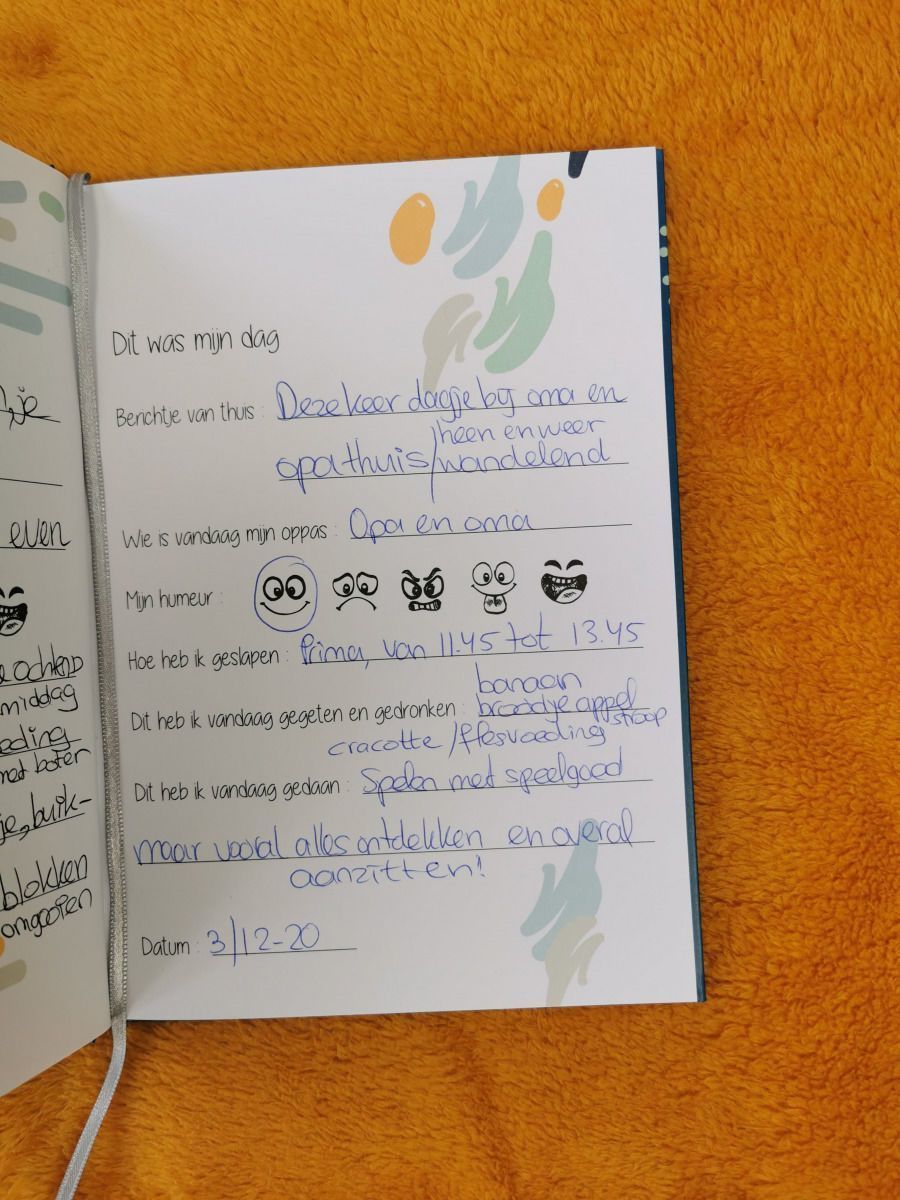 je
even
ochtend
middag
eding
met boter
je, buik-
blokken
omgooien
Dit was mijn dag
Berichtje van thuis : Deze keer dagje bij oma en
heen en weer
opa thuis/wandelend
Wie is vandaag mijn oppas : Opa en oma
Mijn humeur :
Hoe heb ik geslapen : Prima, van 11.45 tot 13.45
banaan
Dit heb ik vandaag gegeten en gedronken : broodje appel
stroop
cracotte / flesvoeding
Dit heb ik vandaag gedaan : Spelen met speelgoed
maar vooral alles ontdekken en overal
aanzitten!
Datum : 3/12-20